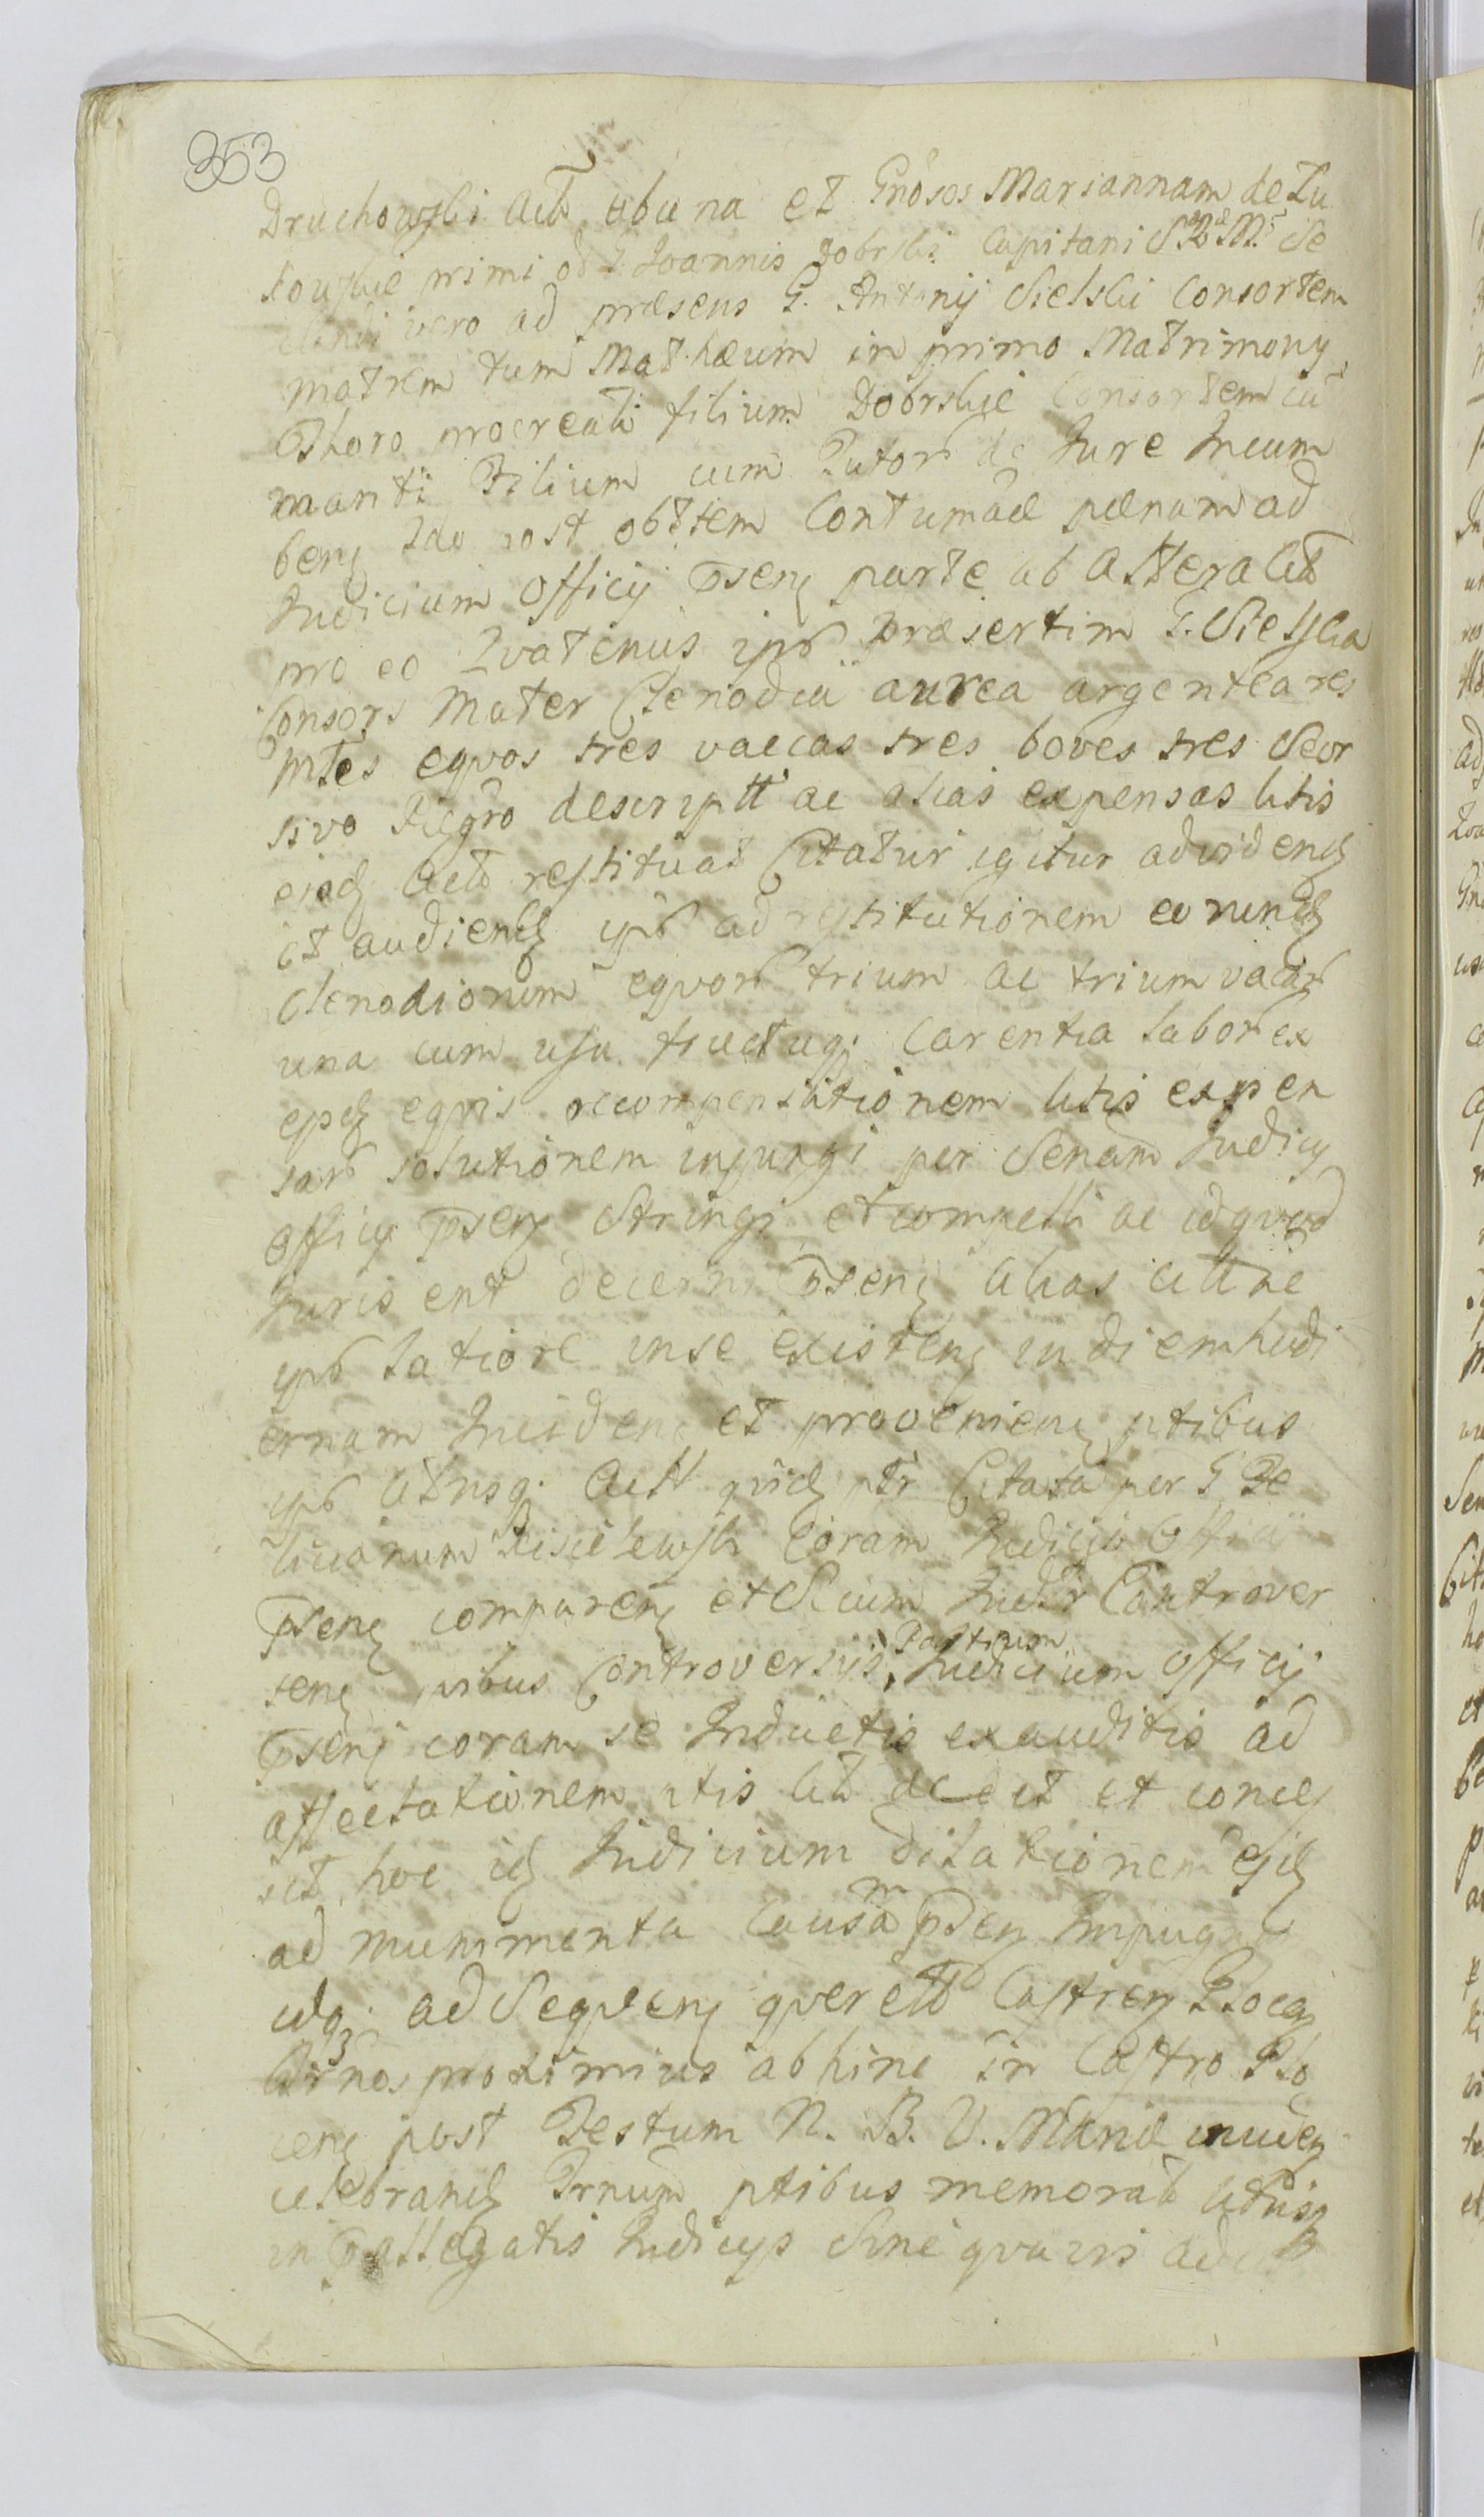 353
Druchowski Actt ab una et Gnosos Mariannam de Zu
kowskie primi G. Joannis Dobrski Capitani S. R. M. Se
cundi vero ad præsens G. Antonij Sielski Consortem
matrem tum Mathæum in primo Matrimony
Thoro procreati filium Dobrskie Consortem cu
manti Filium cum Tutor de Jure Incum
beng 2do post obttem Contumaciæ pænam ad
Judicium Officij pseng parte ab Altera Citt
pro eo Qvatenus ipsi præsertim G. Sielska
Consors Mater Clenodia aurea argentea res
mtes eqvos tres vaccas tres boves tres Seor
sivo Regro descriptt ac alias expensas litis
ejsdg Actt restituat Citatur igitur advidendg
et audiendg ipsor ad restitutionem eorundg
Clenodiorum eqvor trium ac trium vaccar
una cum usu fructuqz Carentia labor ex
ejsdg eqvis recompensationem litis expen
sar solutionem injungi per Senam Judicij
Officij pseng Stringi et compelli ac id qvod
Juris erit decerni pseng alias citane
ipsor latiore in se existeng in diem hodi
ernam Inciden et provenieng ptibus
ipsis Utrisqz Actt qvidg ptr Citata per G Fe
licianum Kisielewski Coram Judicio Officij
pseng compareng et Secum Juder Controver
seng qvibus Controversijs Partium Judicium Officij
pseng coram se Inductis exauditis ad
affectationem ptis Citt dedit et conces
sit hoc idg Judicium dilationem ejsdg
ad munimenta Causam pseng
idqz ad Seqveng qverell Castreng Ploceng
Trnos proximius abhinc in Castro Plo
ceng post Festum N. B. V. Mariæ
celebrandg Trnum ptibus memorat Utrisqz
in pallegatis Judicijs Sine qvavis